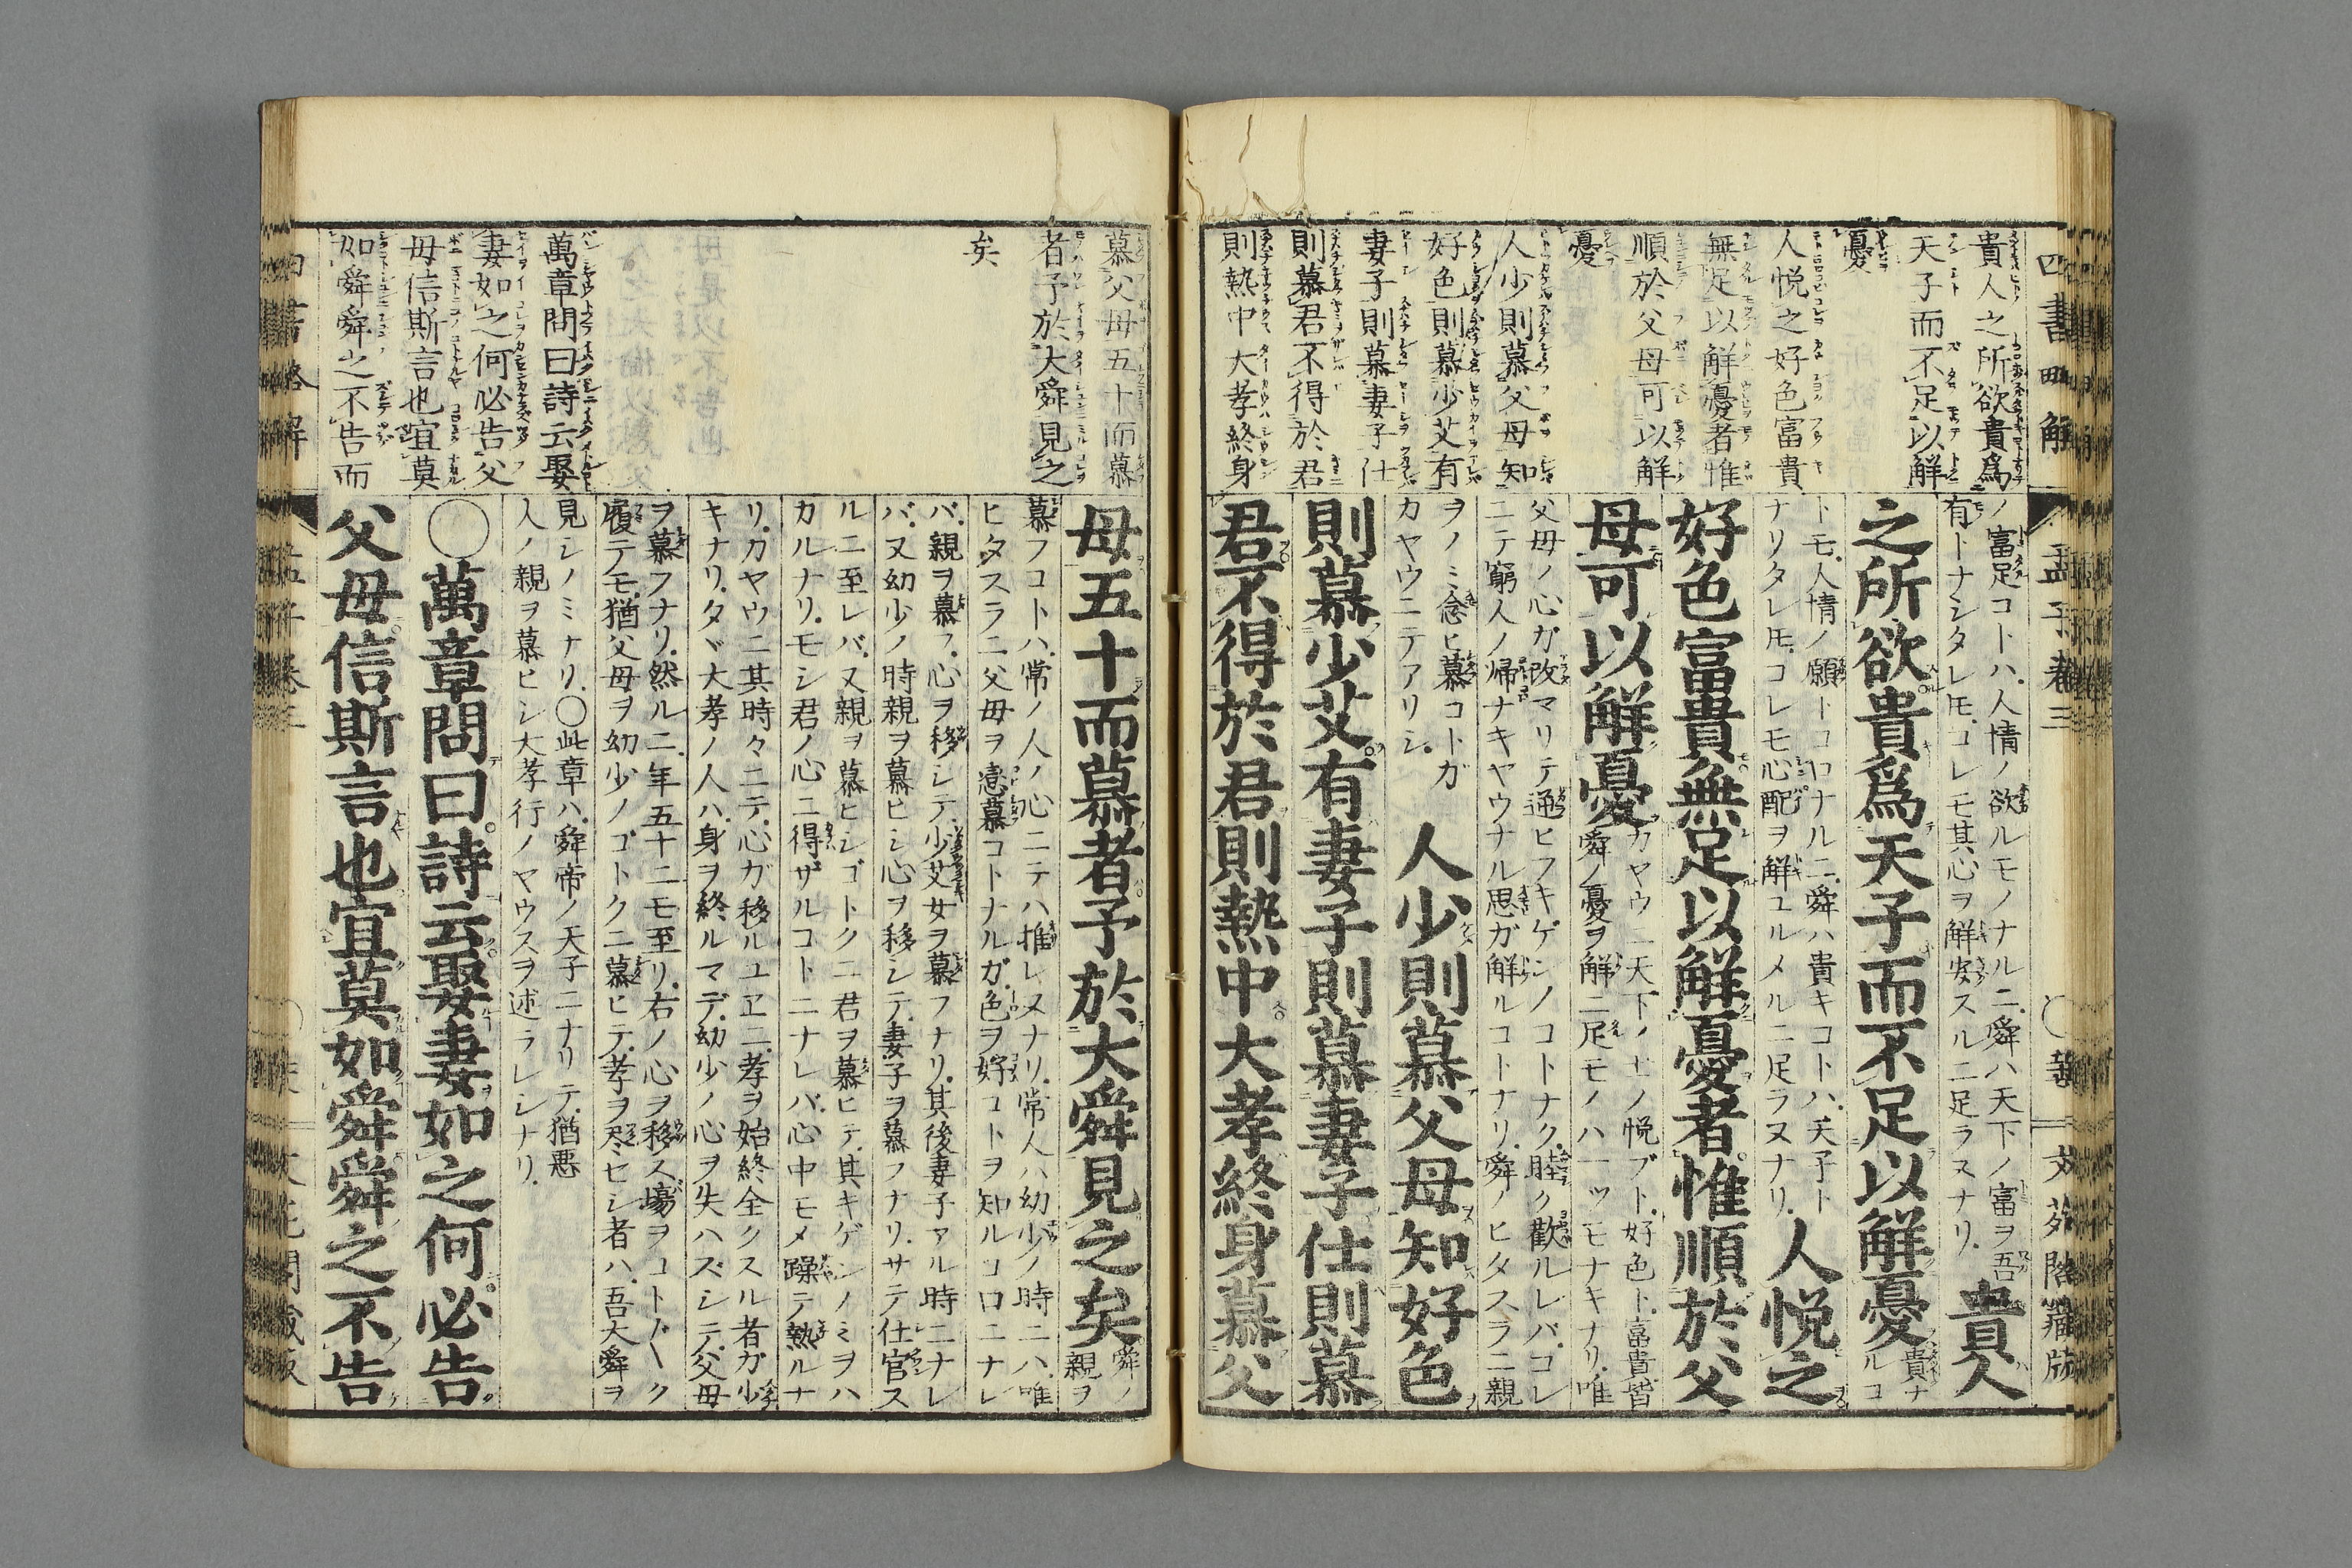 貴人之所欲貴爲
天子而不足以解
憂
人悦之好色富貴
無足以解憂者惟
順於父母可以解
憂
人少則慕父母知
好色則慕少艾有
妻子則慕妻子仕
則慕君不得於君
則熱中大孝終身
ノ富足コトハ人情ノ欲ルモノナルニ舜ハ天下ノ富ヲ吾
有トナシタレ𪜈コレモ其心ヲ解安スルニ足ラヌナリ
貴人
之所欲貴爲天子而不足以解憂
貴ナルコ
トモ人情ノ願トコロナルニ舜ハ貴キコトハ天子ト
ナリタレ𪜈コレモ心配ヲ解ユルメルニ足ラヌナリ
人悦之
好色富貴無足以解憂者惟順於父
母可以解憂
カヤウニ天下ノ士ノ悦ブト好色ト富貴皆
舜ノ憂ヲ解ニ足モノハ一ツモナキナリ唯
父母ノ心ガ改マリテ通ヒフキゲンノコトナク睦ク歡ルレバコレ
ニテ窮人ノ帰ナキヤウナル思ガ解ルコトナリ舜ノヒタスラニ親
ヲノミ念ヒ慕コトガ
カヤウニテアリシ
人少則慕父母知好色
則慕少艾有妻子則慕妻子仕則慕
君不得於君則熱中大孝終身慕父
四書畧解
孟子卷三
慕父母五十而慕
者予於大舜見之
矣
萬章問曰詩云娶
妻如之何必告父
母信斯言也宜莫
如舜舜之不告而
母五十而慕者予於大舜見之矣
舜ノ
親ヲ
慕フコトハ常ノ人ノ心ニテハ推レヌナリ常人ハ幼少ノ時ニハ唯
ヒタスラニ父母ヲ戀慕コトナルガ色ヲ好コトヲ知ルコロニナレ
バ親ヲ慕フ心ヲ移シテ少艾女ヲ慕フナリ其後妻子アル時ニナレ
バ又幼少ノ時親ヲ慕ヒシ心ヲ移シテ妻子ヲ慕フナリサテ仕官ス
ルニ至レバ又親ヲ慕ヒシゴトクニ君ヲ慕ヒテ其キゲンノミヲハ
カルナリモシ君ノ心ニ得ザルコトニナレバ心中モメ躁テ熱ルナ
リカヤウニ其時々ニテ心ガ移ルユヱニ孝ヲ始終全クスル者ガ少
キナリタヾ大孝ノ人ハ身ヲ終ルマデ幼少ノ心ヲ失ハズシテ父母
ヲ慕フナリ然ルニ年五十ニモ至リ右ノ心ヲ移ス塲ヲコト〴〵ク
履テモ猶父母ヲ幼少ノゴトクニ慕ヒテ孝ヲ尽セシ者ハ吾大舜ヲ
見シノミナリ〇此章ハ舜帝ノ天子ニナリテ猶悪
人ノ親ヲ慕ヒシ大孝行ノヤウスヲ述ラレシナリ
〇萬章問曰詩云娶妻如之何必告
父母信斯言也宜莫如舜舜之不告